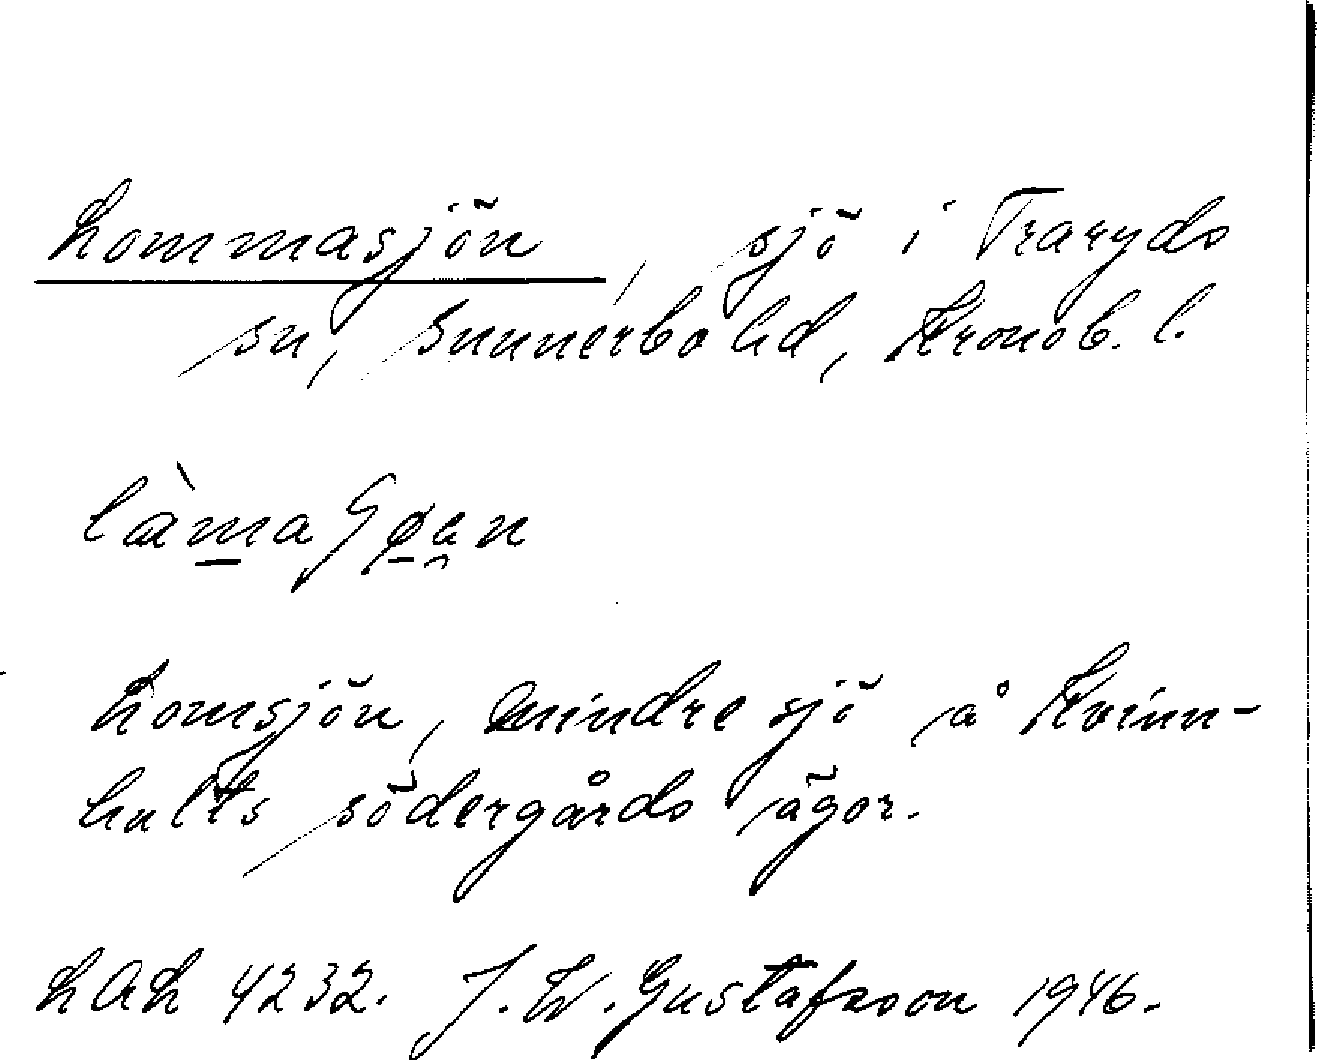 Lommasjön, sjö i Traryds
sn, Sunnerbo hd, Kronob. l.
Lomsjön, mindre sjö å Kvinn-
hults södergårds ägor.
LAL 4232. J. W. Gustafsson 1946.